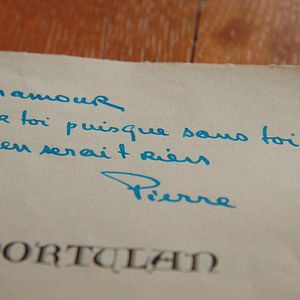 amour
toi puisque sans toi
en serait rien
Pierre
PORTULAN